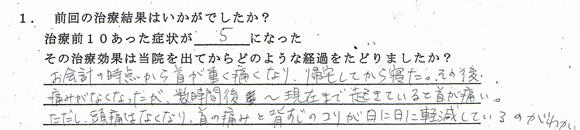 1. 前回の治療結果はいかがでしたか？
治療前10あった症状が 5 になった
その治療効果は当院を出てからどのような経過をたどりましたか？
お会計の時点から首が重く痛くなり、帰宅してから寝た。その後
痛みがなくなったが、数時間後〜現在まで起きていると首が痛い。
ただし、頭痛はなくなり、首の痛みと背すじのコリが日に日に軽減しているのがわか